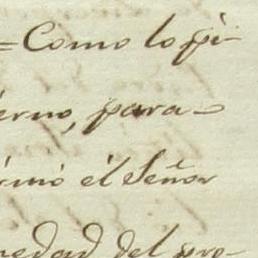 =Como lo pi-
erno, para
rmó él Señor
nedad del pre-